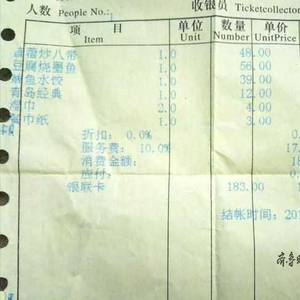 人数 People No.: 收银员 Ticketcollector
项目 单位 数量 单价
Item Unit Number UnitPrice
炒八带 1.0 48.00
豆腐烧墨鱼 1.0 56.00
鱼水饺 1.0 39.00
青岛经典 1.0 12.00
湿巾 2.0 4.00
巾纸 1.0 3.00
折扣: 0.0%
服务费: 10.0% 17.
消费金额:
应付:
银联卡 183.00
结帐时间: 20